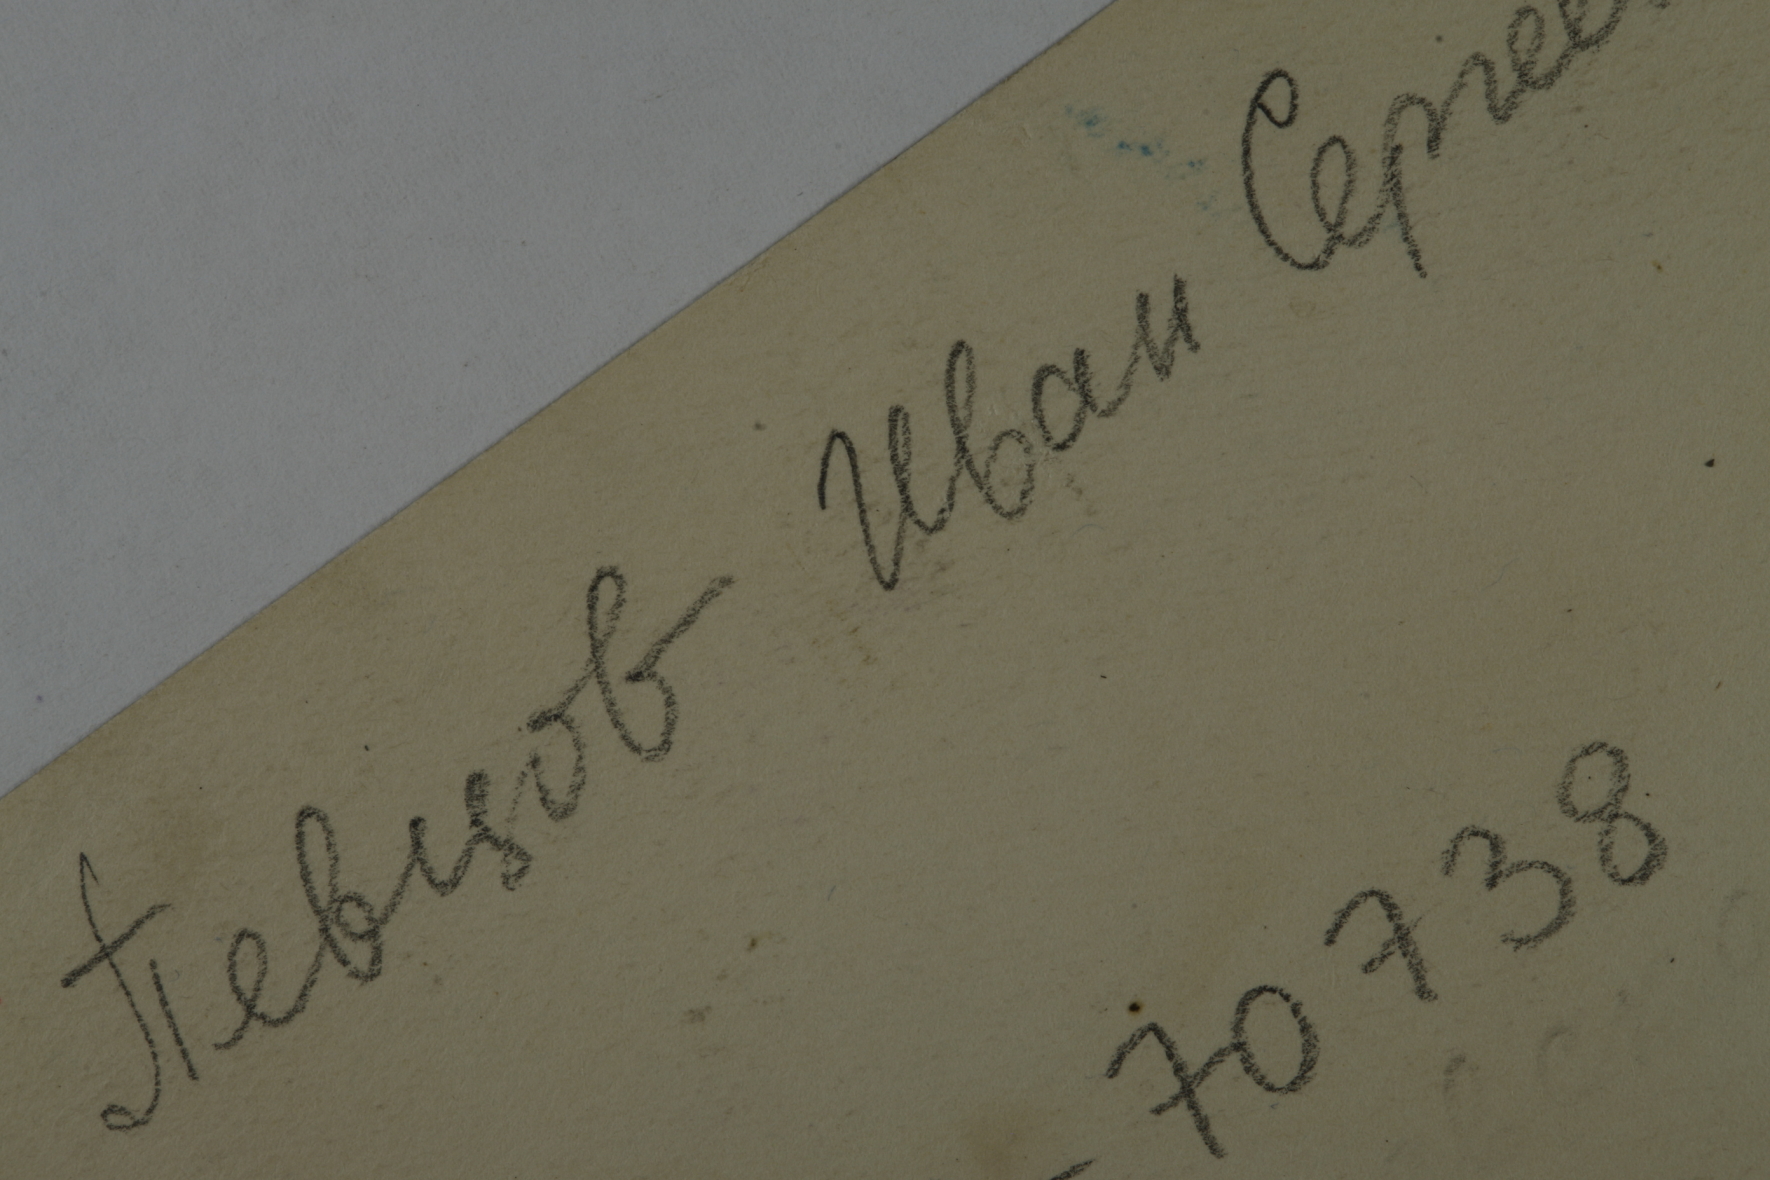 Певцов Иван Сергее
70738